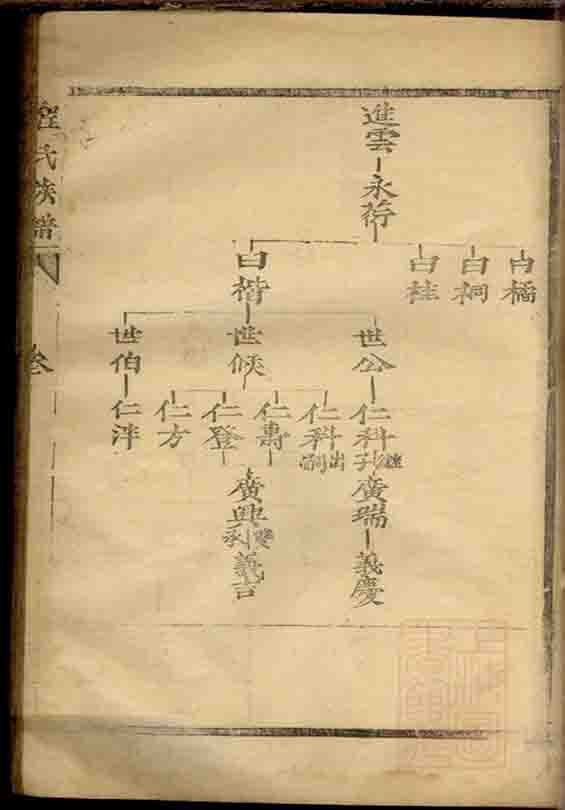 進雲
永荇
白橘
白桐
白桂
白楷
世公
世候
世伯
仁科
廣瑞
義慶
仁科
出
仁壽
仁登
仁方
仁泮
廣興
義吉
氏族譜